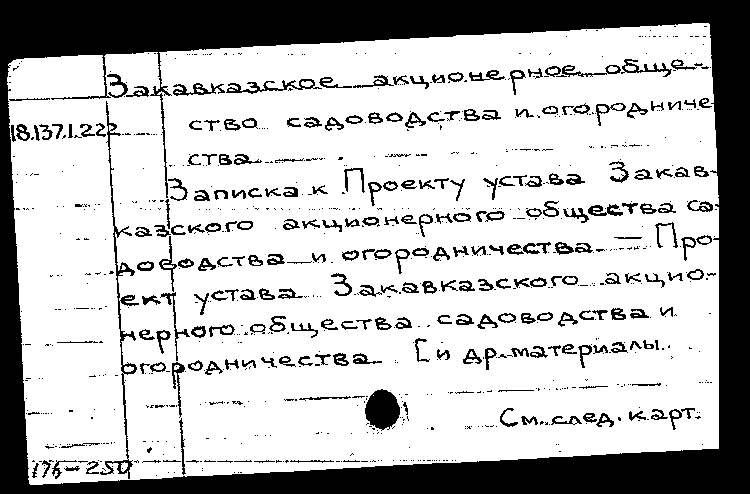 Закавказское акционерное обще-
18.137.1.222 ство садоводства и огородниче
ства
Записка к Проекту устава Закав-
казского акционерного общества са-
доводства и огородничества. — Про-
ект устава Закавказского акцио-
нерного общества садоводства и
огородничества. [и др. материалы.
См. след. карт.
176-250